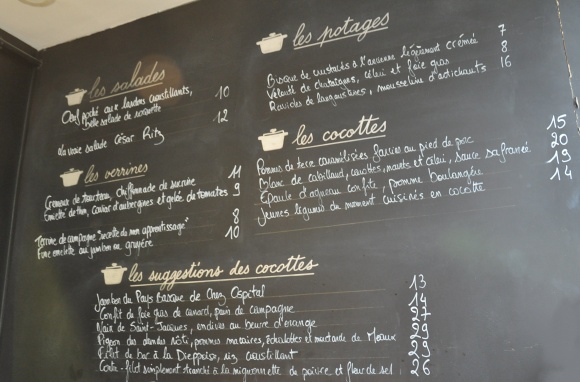 les salades
Oeuf poché aux lardons croustillants, 10
belle salade de roquette
La vraie salade César Ritz 12
les verrines
Crémeux de tourteau, chiffonnade de sucrine 11
Emietté de thon, caviar d'aubergines et gelée de tomates 9
Terrine de campagne "recette de mon apprentissage" 8
Fine omelette au jambon ou gruyère 10
les potages
Bisque de crustacés à l'ancienne légèrement crémée 7
Velouté de chataignes, céleri et foie gras 8
Ravioles de langoustines, mousseline d'artichauts 16
les cocottes
Pommes de terre caramélisées farcies au pied de porc 15
Blanc de cabillaud, carottes, navets et céleri, sauce safranée 20
Epaule d'agneau confite, pomme boulangère 19
Jeunes légumes du moment cuisinés en cocotte 14
les suggestions des cocottes
Jambon du Pays Basque de Chez Ospital 13
Confit de foie gras de canard, pain de campagne 14
Noix de Saint-Jacques, endives au beurre d'orange 27
Pigeon des landes rôti, pommes, échalottes et moutarde de Meaux 29
Filet de bar à la Dieppoise, riz croustillant
Contre-filet simplement tranché à la mignonnette de poivre et fleur de sel 26